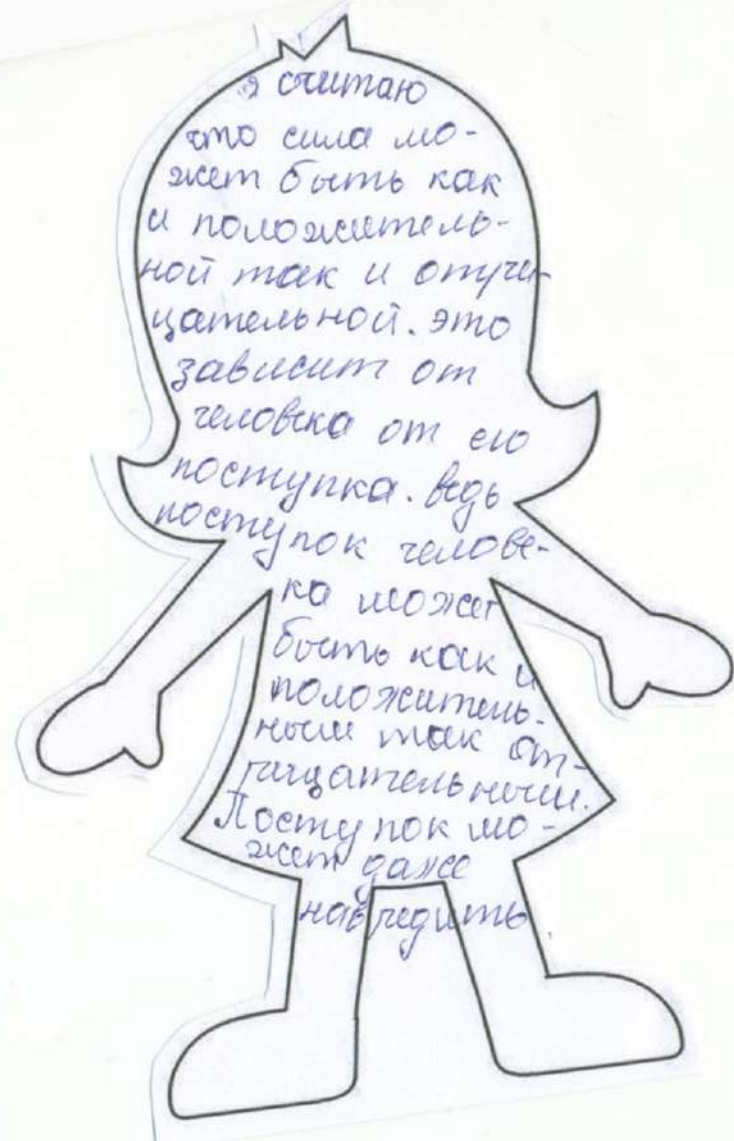 я считаю
что сила мо-
жет быть как
и положитель-
ной так и отри-
цательной. это
зависит от
человека от его
поступка. ведь
поступок челове-
ка может
быть как и
положитель-
ным так от-
рицательным.
Поступок мо-
жет даже
навредить